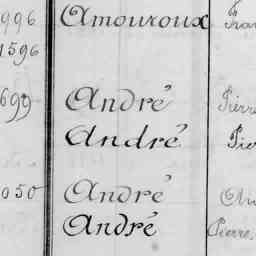 996 Amouroux
1596
699 André Pierre
André
050 André
André Pierre,